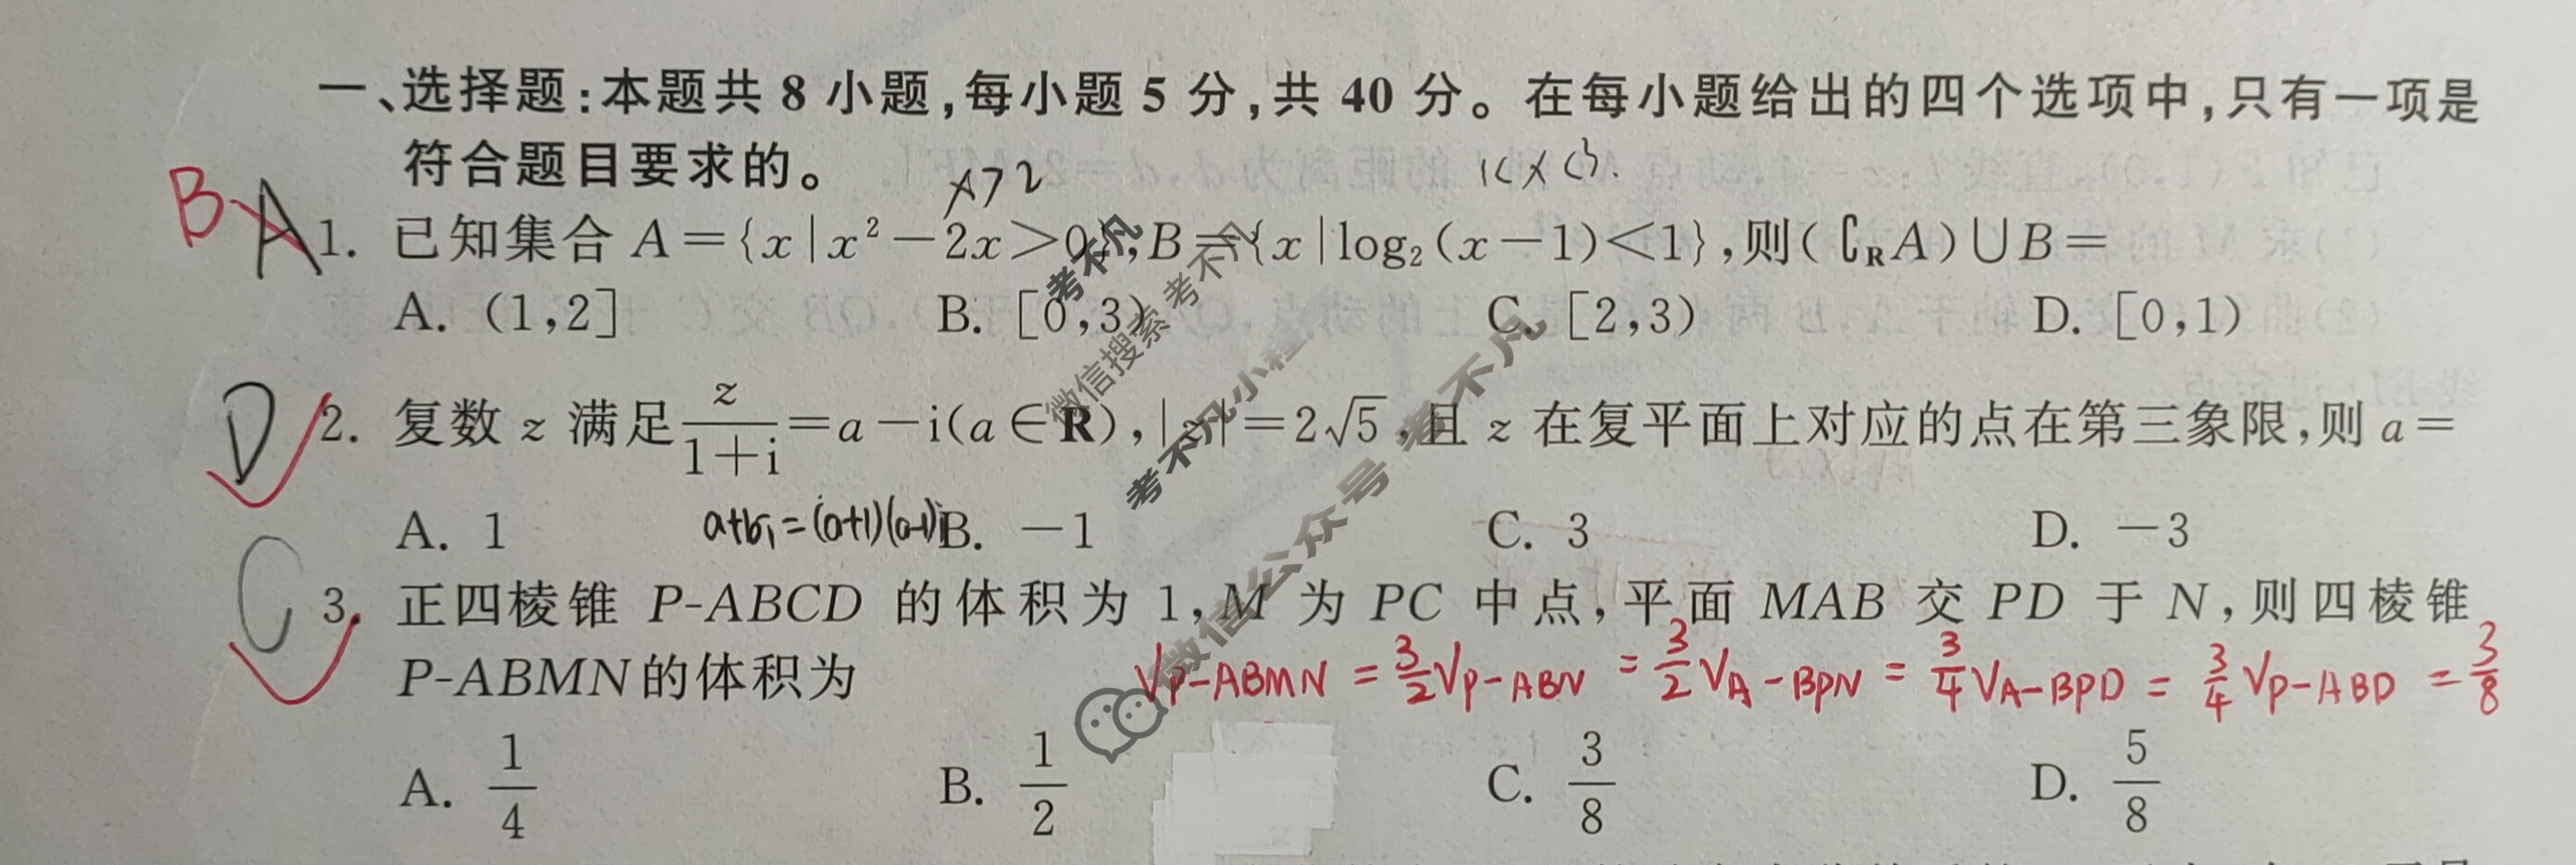 一、选择题:本题共 8 小题,每小题 5 分,共 40 分。在每小题给出的四个选项中,只有一项是
符合题目要求的。
x>2
1<x<3.
B A
1. 已知集合 A={x|x²-2x>0},B={x|log₂(x-1)<1},则(∁_R A)∪B=
A. (1,2] B. [0,3) C. [2,3) D. [0,1)
D
2. 复数 z 满足 z/(1+i)=a-i(a∈R),|z|=2√5,且 z 在复平面上对应的点在第三象限,则 a=
A. 1 B. -1 C. 3 D. -3
a+bi=(a+1)(a-1)i
C
3. 正四棱锥 P-ABCD 的体积为 1,M 为 PC 中点,平面 MAB 交 PD 于 N,则四棱锥
P-ABMN的体积为
V_{P-ABMN} = 3/2 V_{P-ABN} = 3/2 V_{A-BPN} = 3/4 V_{A-BPD} = 3/4 V_{P-ABD} = 3/8
A. 1/4 B. 1/2 C. 3/8 D. 5/8
考不凡
微信搜索 考不凡
考不凡小程
微信公众号 考不凡